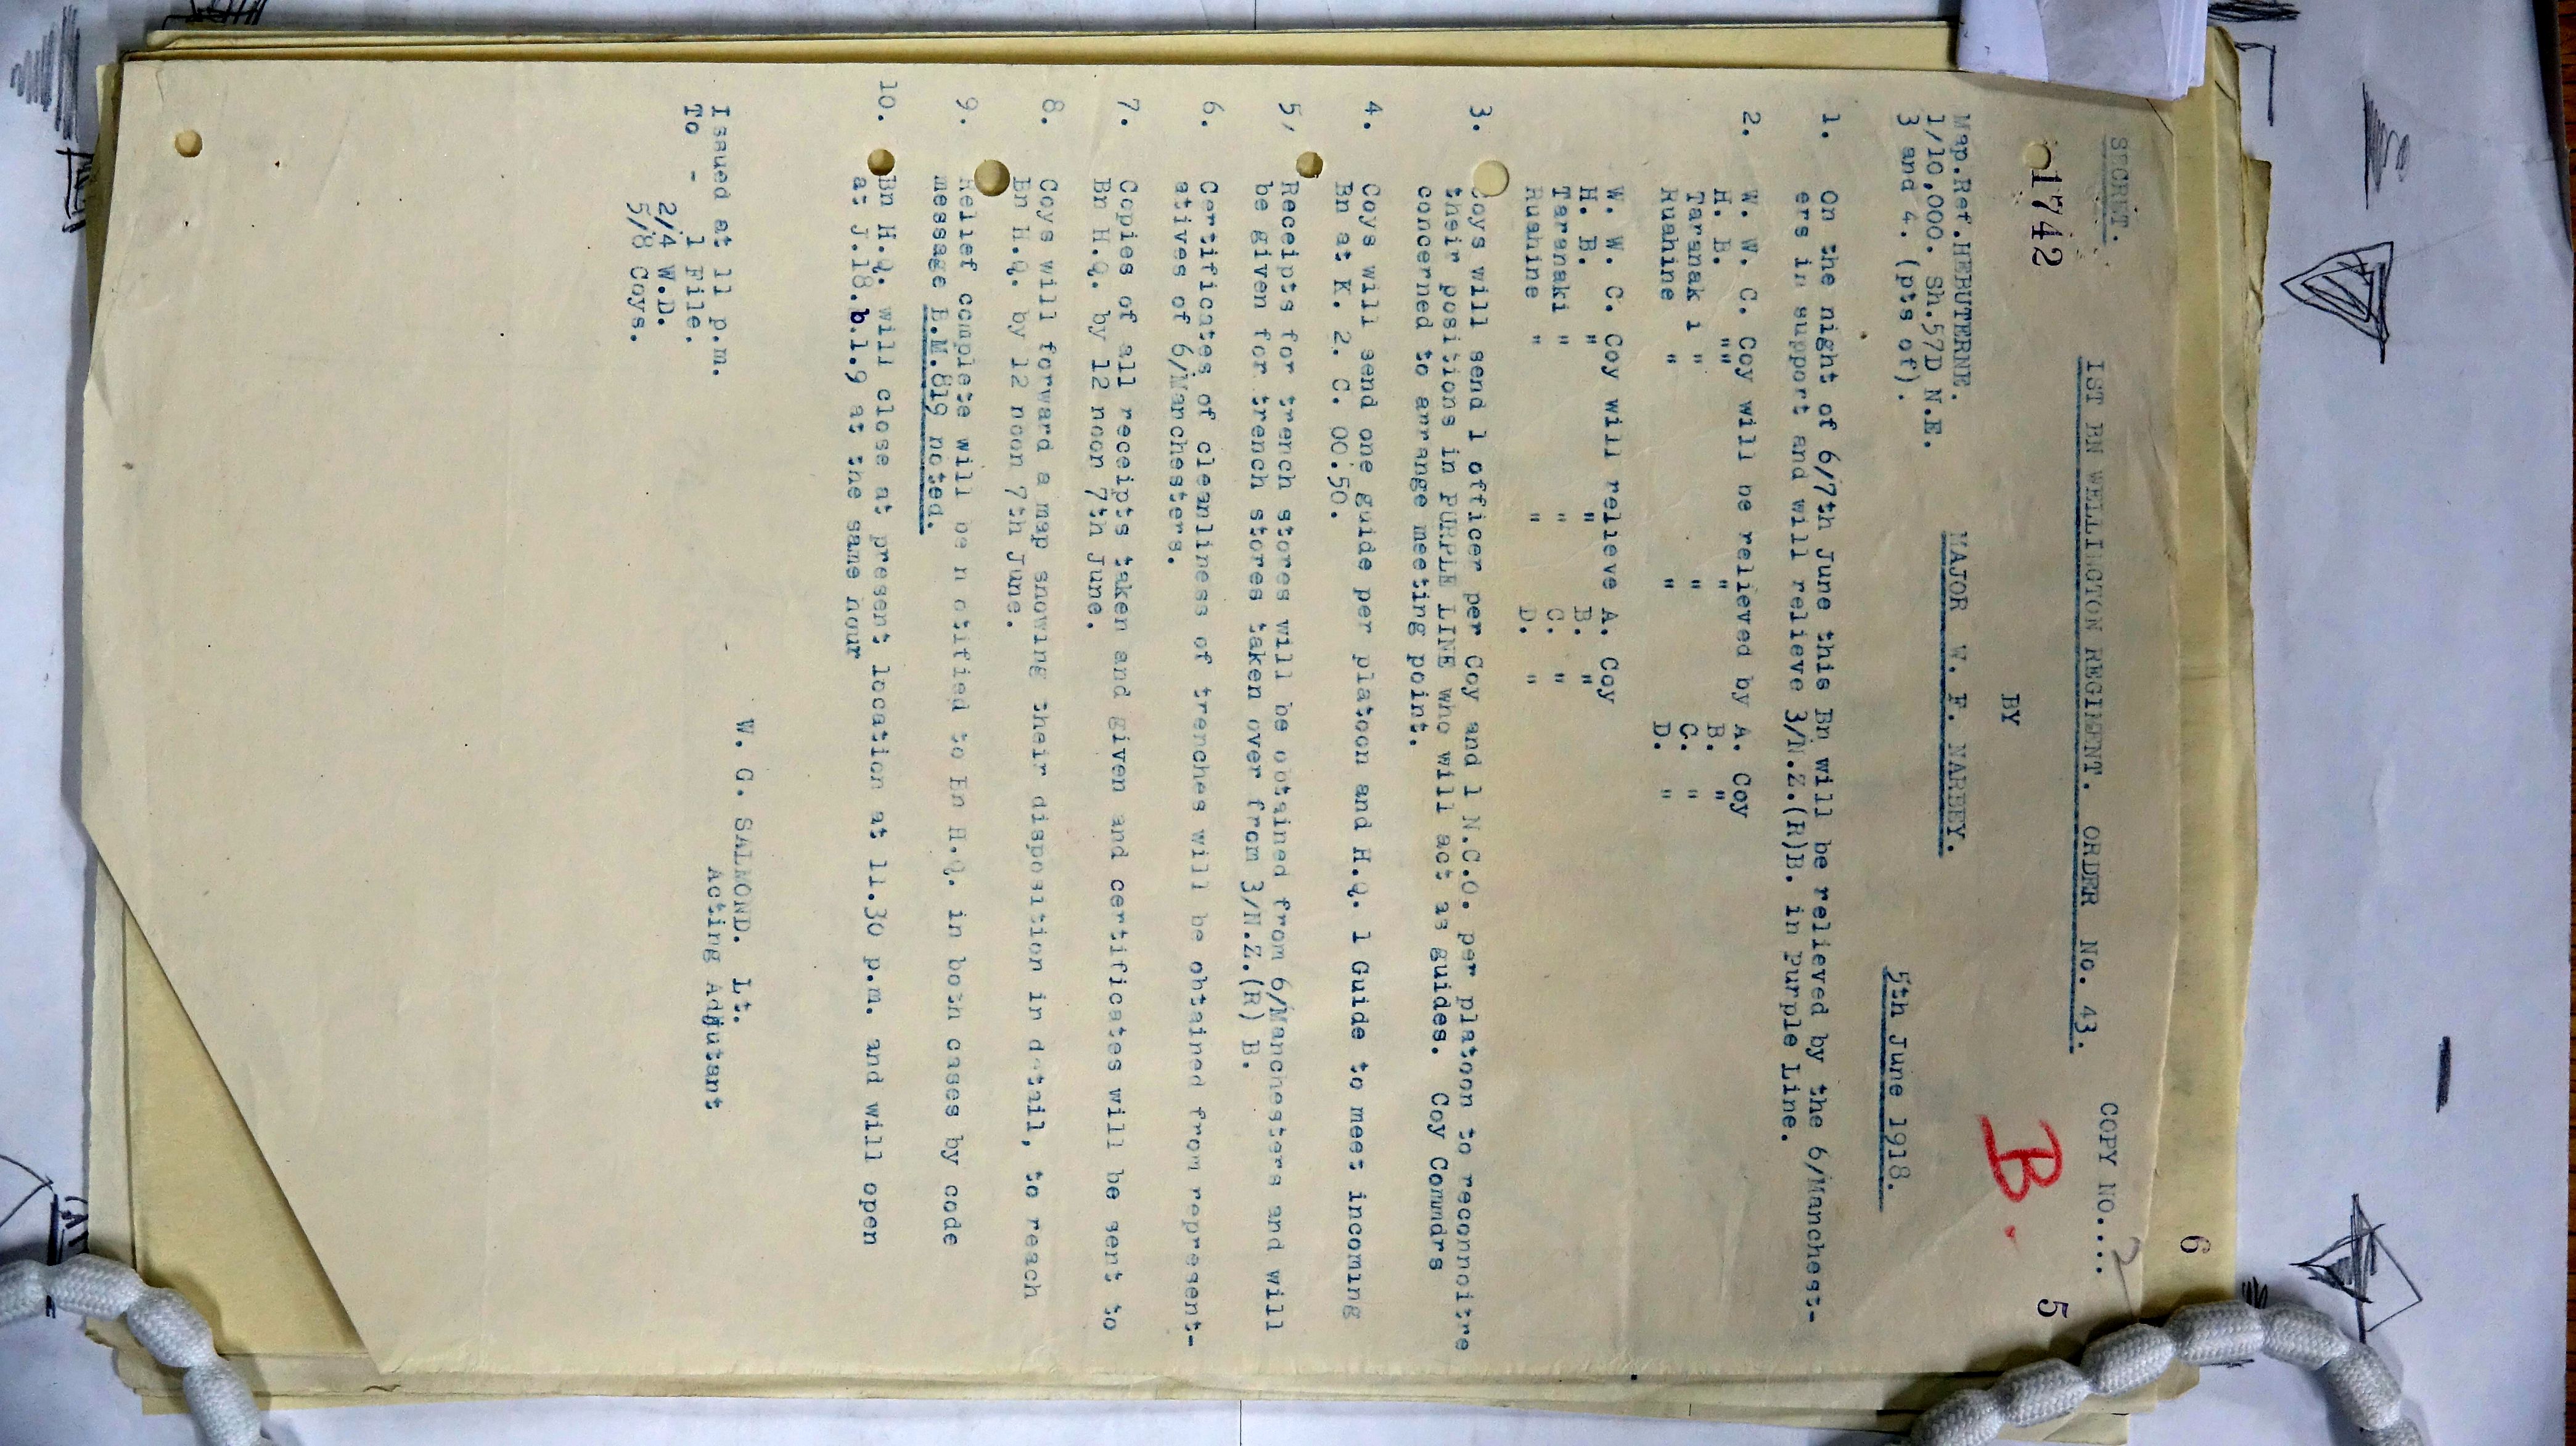 SECRET.
6
1ST BN WELLINGTON REGIMENT. ORDER No. 43.
COPY NO.....2
1742
BY
B.
5
Map.Ref.HEBUTERNE.
MAJOR W. F. NARBEY.
1/10,000. Sh.57D N.E.
3 and 4. (pts of).
5th June 1918.
1. On the night of 6/7th June this Bn will be relieved by the 6/Manchest-
ers in support and will relieve 3/N.Z.(R)B. in Purple Line.
2. W. W. C. Coy will be relieved by A. Coy
H. B. "" " B. "
Taranak i " " C. "
Ruahine " " D. "
W. W. C. Coy will relieve A. Coy
H. B. " " B. "
Taranaki " " C. "
Ruahine " " D. "
3. Coys will send 1 officer per Coy and 1 N.C.O. per platoon to reconnoitre
their positions in PURPLE LINE who will act as guides. Coy Comndrs
concerned to arrange meeting point.
4. Coys will send one guide per platoon and H.Q. 1 Guide to meet incoming
Bn at K. 2. C. 00.50.
5/ Receipts for trench stores will be obtained from 6/Manchesters and will
be given for trench stores taken over from 3/N.Z.(R) B.
6. Certificates of cleanliness of trenches will be obtained from represent-
atives of 6/Manchesters.
7. Copies of all receipts taken and given and certificates will be sent to
Bn H.Q. by 12 noon 7th June.
8. Coys will forward a map snowing their disposition in detail, to reach
Bn H.Q. by 12 noon 7th June.
9. Relief complete will be n otified to Bn H.Q. in both cases by code
message B.M.819 noted.
10. Bn H.Q. will close at present location at 11.30 p.m. and will open
at J.18.b.1.9 at the same hour
W. G. SALMOND. Lt.
Issued at 11 p.m.
Acting Adjutant
To - 1 File.
2/4 W.D.
5/8 Coys.